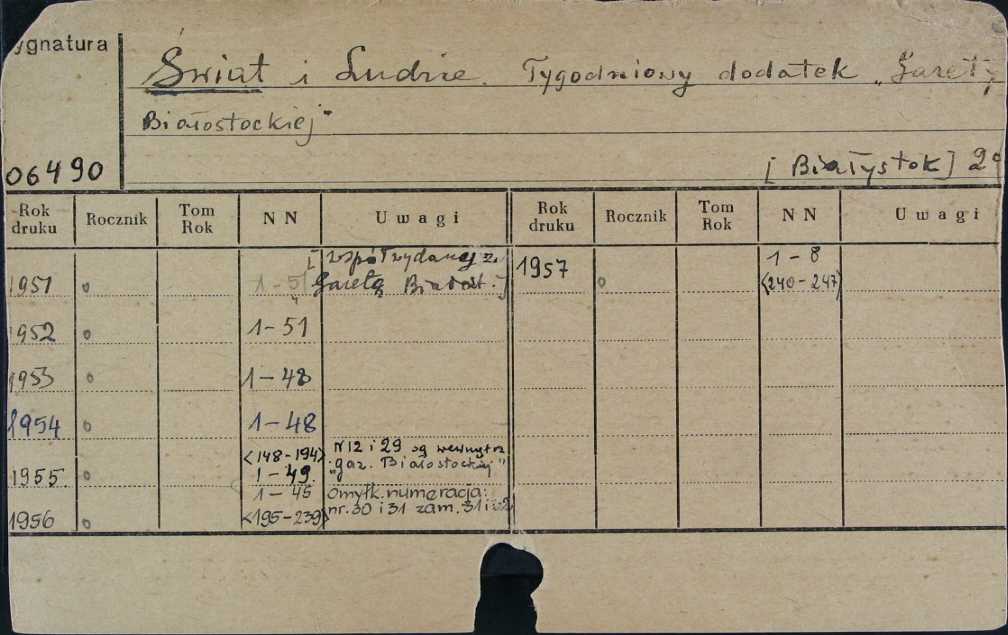 ygnatura
Świat i Ludzie. Tygodniowy dodatek „Gazety
Białostockiej"
06490
[Białystok] 2°
Rok druku Rocznik Tom Rok NN Uwagi Rok druku Rocznik Tom Rok NN Uwagi
1951 o 1-51 [współwydawany z Gazetą Białost.] 1957 o 1-8 <240-247>
1952 o 1-51
1953 o 1-48
1954 o 1-48
1955 o <148-194> 1-49 N 12 i 29 są wewnątrz „gaz. Białostockiej"
1956 o 1-45 <195-239> omyłk. numeracja: nr. 30 i 31 zam. 31 i 32